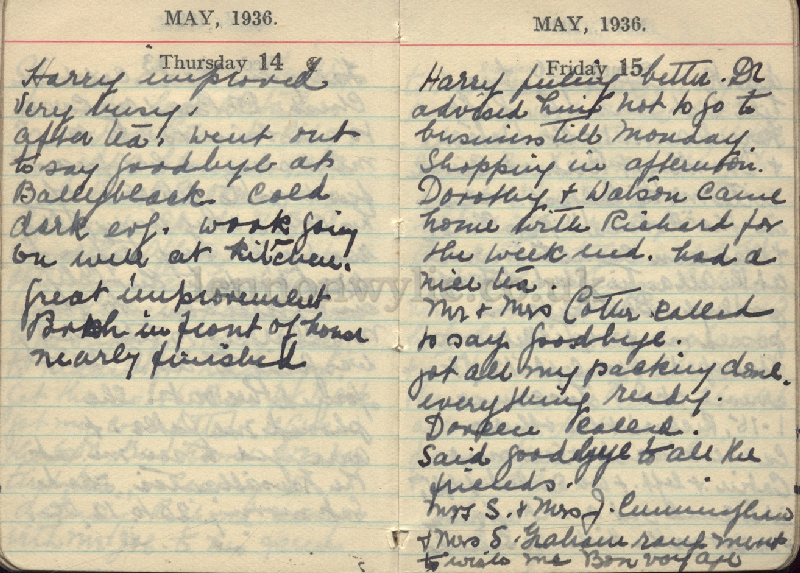 MAY, 1936.
Thursday 14
Harry improved
very busy.
after tea. went out
to say goodbye at
Ballyblack. Cold
dark evg. work going
on well at kitchen.
great improvement
Porch in front of house
nearly finished
MAY, 1936.
Friday 15
Harry feeling better. Dr
advised him not to go to
business till Monday
Shopping in afternoon.
Dorothy & Watson came
home with Richard for
the week end. had a
nice tea.
Mr & Mrs Cotter called
to say goodbye.
got all my packing done.
everything ready.
Doreen called.
Said goodbye to all the
friends.
Mrs S. & Mrs J. Cunningham
& Mrs S. Graham rang
to wish me Bon voyage